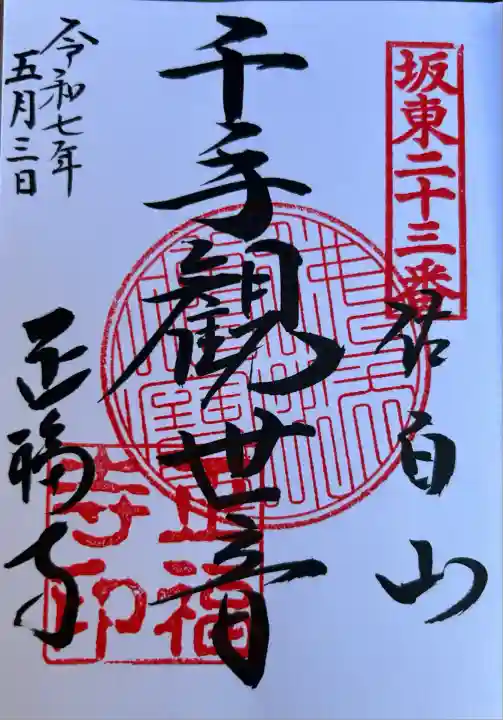 坂東二十三番
佐白山
千手觀世音
正福寺
正福
寺印
令和七年
五月三日